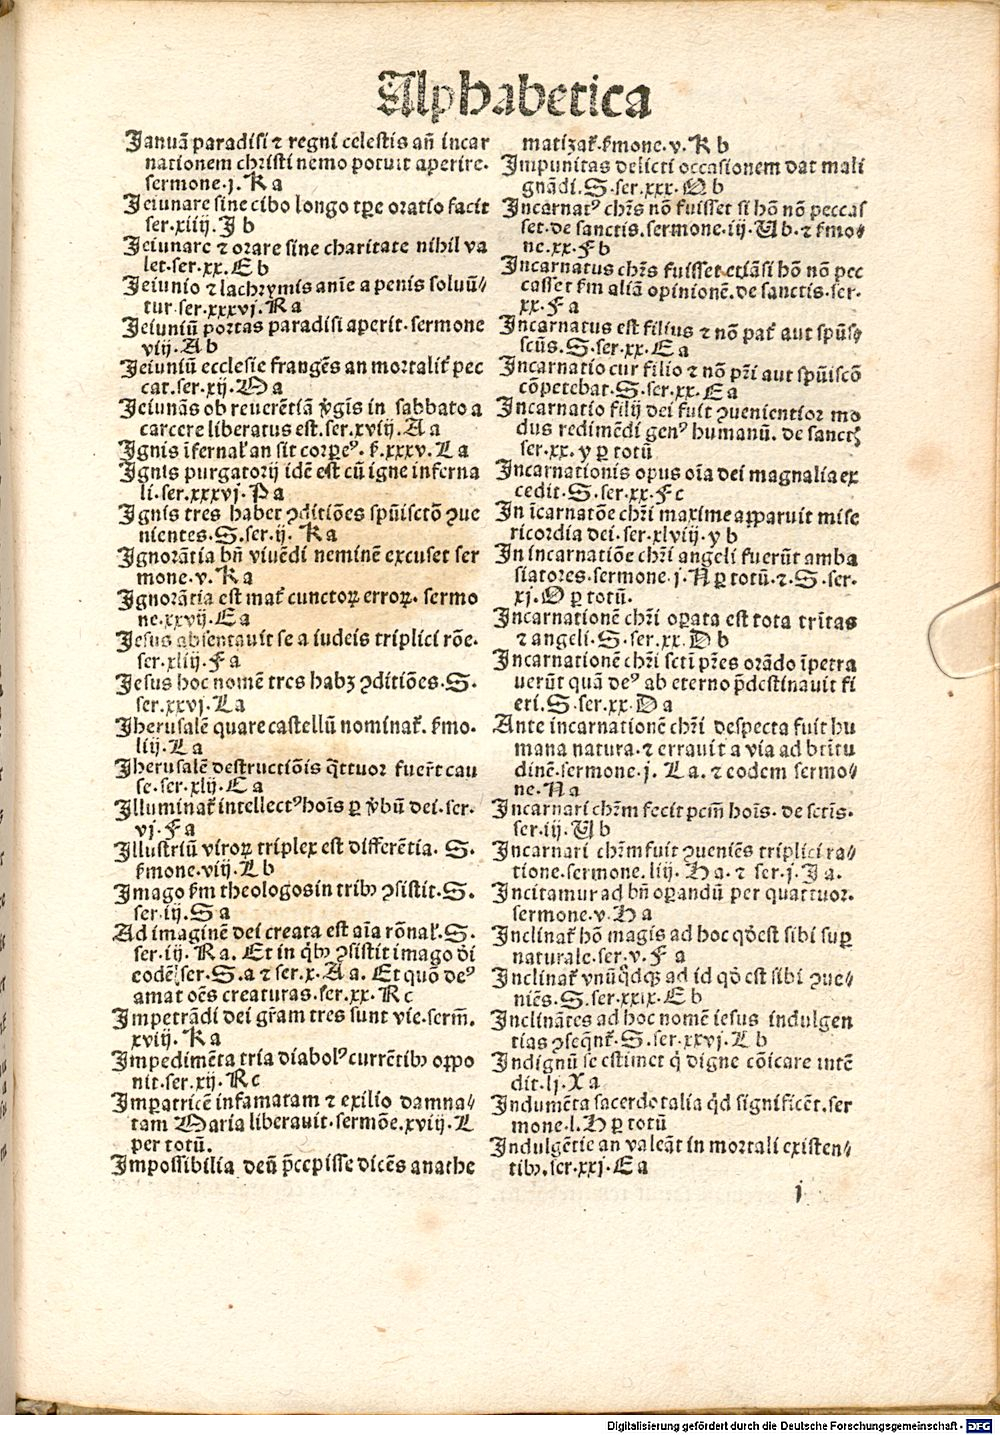 Alphabetica
Januā paradisi ⁊ regni celestis añ incar
nationem christi nemo potuit aperire.
sermone.j. K a
Jeiunare sine cibo longo tꝑe oratio facit
ser.xiiij. J b
Jeiunare ⁊ orare sine charitate nihil va
let.ser.xx. E b
Jeiunio ⁊ lachrymis anīe a penis soluū⸗
tur ser.xxxvj. R a
Jeiuniū portas paradisi aperit. sermone
viij. A b
Jeiuniū ecclesie frangēs an mortalit̉ pec
cat.ser.xij. O a
Jeiunās ob reuerētiā v̓gīs in sabbato a
carcere liberatus est.ser.xviij. A a
Ignis īfernal̉ an sit corꝑeꝰ. ẜ.xxxv. L a
Ignis purgatorij idē est cū igne inferna
li.ser.xxxvj. P a
Ignis tres habet ꝯditiōes spūisctō ꝯue
nientes. S. ser.ij. K a
Ignorātia bñ viuēdi neminē excuset ser
mone.v. K a
Ignorātia est mat̉ cunctoꝝ erroꝝ. sermo
ne.xxvij. E a
Jesus absentauit se a iudeis triplici rōe.
ser.xlij. F a
Jesus hoc nomē tres habꝫ ꝯditiōes. S.
ser.xxvj. L a
Jherusalē quare castellū nominat̉. ẜmo.
liij. L a
Jherusalē destructiōis q̄ttuor fuer̄t cau
se.ser.xlij. E a
Illuminat̉ intellectꝰ hoīs ꝑ v̓bū dei.ser.
vj. F a
Illustriū viroꝝ triplex est differētia. S.
ẜmone.viij. L b
Imago ẜm theologos in tribꝰ ꝯsistit. S.
ser.ij. S a
Ad imaginē dei creata est aīa rōnal̉. S.
ser.ij. R a. Et in q̇bꝰ ꝯsistit imago d̄i
eodē ser. S. a ⁊ ser.x. A a. Et quō deꝰ
amat oēs creaturas.ser.xx. R c
Impetrādi dei gr̄am tres sunt vie.serm̄.
xviij. K a
Impedimēta tria diabolꝰ currētibꝰ oppo
nit.ser.xij. R c
Imꝑatricē infamatam ⁊ exilio damna⸗
tam Maria liberauit.sermōe.xviij. L
per totū.
Impossibilia deū p̄cepisse dicēs anathe
matizat̉. ẜmone.v. K b
Impunitas delicti occasionem dat mali
gnādi. S. ser.xxx. O b
Incarnatꝰ chr̄s nō fuisset si hō nō peccas
set.de sanctis.sermone.iij. U b. ⁊ ẜmo⸗
ne.xx. F b
Incarnatus chr̄s fuisset etiāsi hō nō pec
casset ẜm aliā opinionē.de sanctis.ser.
xx. F a
Incarnatus est filius ⁊ nō pat̉ aut spūs⸗
scūs. S. ser.xx. E a
Incarnatio cur filio ⁊ nō pr̄i aut spūiscō
cōpetebat. S. ser.xx. E a
Incarnatio filij dei fuit ꝯuenientior mo
dus redimēdi genꝰ humanū. de sanctꝭ
ser.xx. y ꝑ totū
Incarnationis opus oīa dei magnalia ex
cedit. S. ser.xx. F c
In īcarnatōe chr̄i maxime apparuit mise
ricordia dei.ser.xlviij. y b
In incarnatiōe chr̄i angeli fuerūt amba
siatores.sermone.j. N ꝑ totū. ⁊. S. ser.
xj. O ꝑ totū.
Incarnationē chr̄i oꝑata est tota tr̄itas
⁊ angeli. S. ser.xx. D b
Incarnationē chr̄i scti pr̄es orādo īpetra
uerūt quā deꝰ ab eterno p̄destinauit fi
eri. S. ser.xx. D a
Ante incarnationē chr̄i despecta fuit hu
mana natura. ⁊ errauit a via ad btītu
dinē.sermone.j. L a. ⁊ eodem sermo⸗
ne. N a
Incarnari chr̄m fecit pctm̄ hoīs. de sctīs.
ser.iij. U b
Incarnari chr̄m fuit ꝯueniēs triplici ra⸗
tione.sermone.liij. H a. ⁊ ser.j. J a.
Incitamur ad bñ oꝑandū per quattuor.
sermone.v. H a
Inclinat̉ hō magis ad hoc qd̄ est sibi suꝑ
naturale.ser.v. F a
Inclinat̉ vnūq̇dqꝫ ad id qd̄ est sibi ꝯue⸗
niēs. S. ser.xxix. E b
Inclinātes ad hoc nomē iesus indulgen
tias ꝯseqūt̉. S. ser.xxvj. L b
Indignū se estimet q̇ digne cōicare intē
dit.lj. X a
Indumēta sacerdotalia q̇d significēt.ser
mone.l. H ꝑ totū
Indulgētie an valeāt in mortali existen⸗
tibꝰ.ser.xxj. E a
j
Digitalisierung gefördert durch die Deutsche Forschungsgemeinschaft - DFG